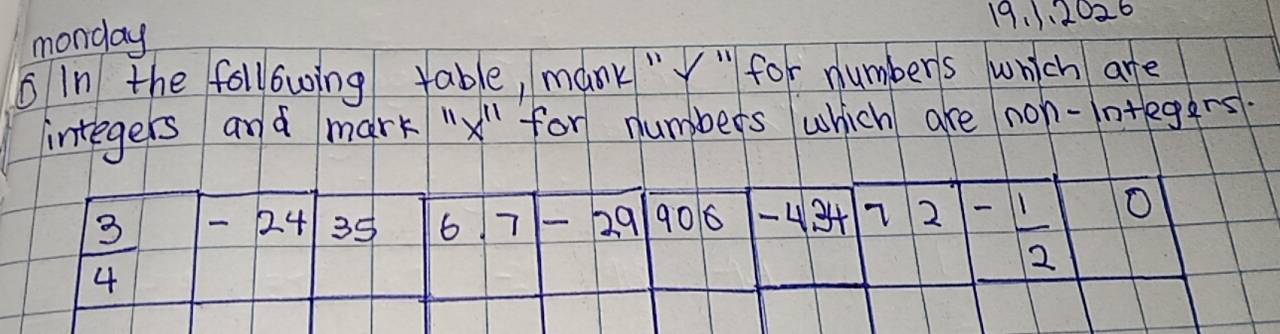 19.1.2026
monday
6 In the following table, mark "Y" for numbers which are
integers and mark "x" for numbers which are non-integers.
3/4 | - 24 | 35 | 6.7 | - 29 | 906 | -434 | 72 | - 1/2 | 0